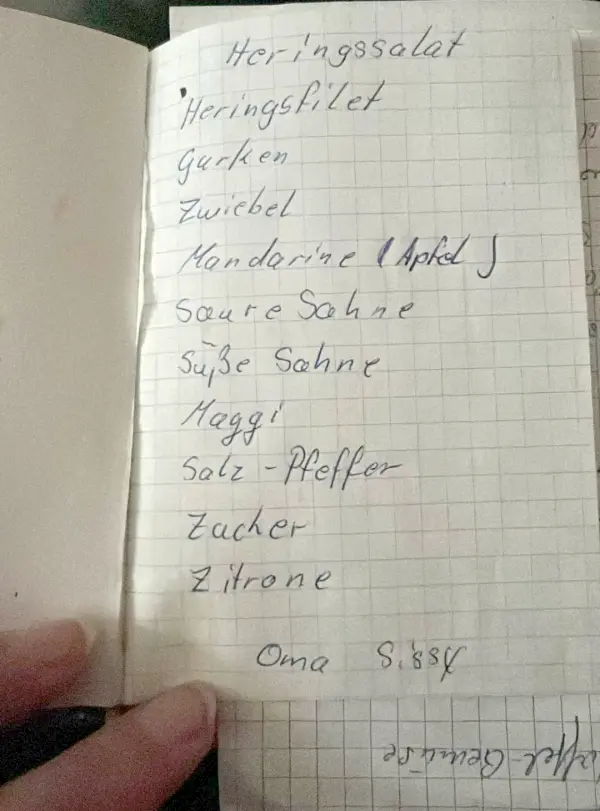 Heringssalat
Heringsfilet
Gurken
Zwiebel
Mandarine (Apfel)
Saure Sahne
Süße Sahne
Maggi
Salz - Pfeffer
Zucker
Zitrone
Oma
offel-Gemüse